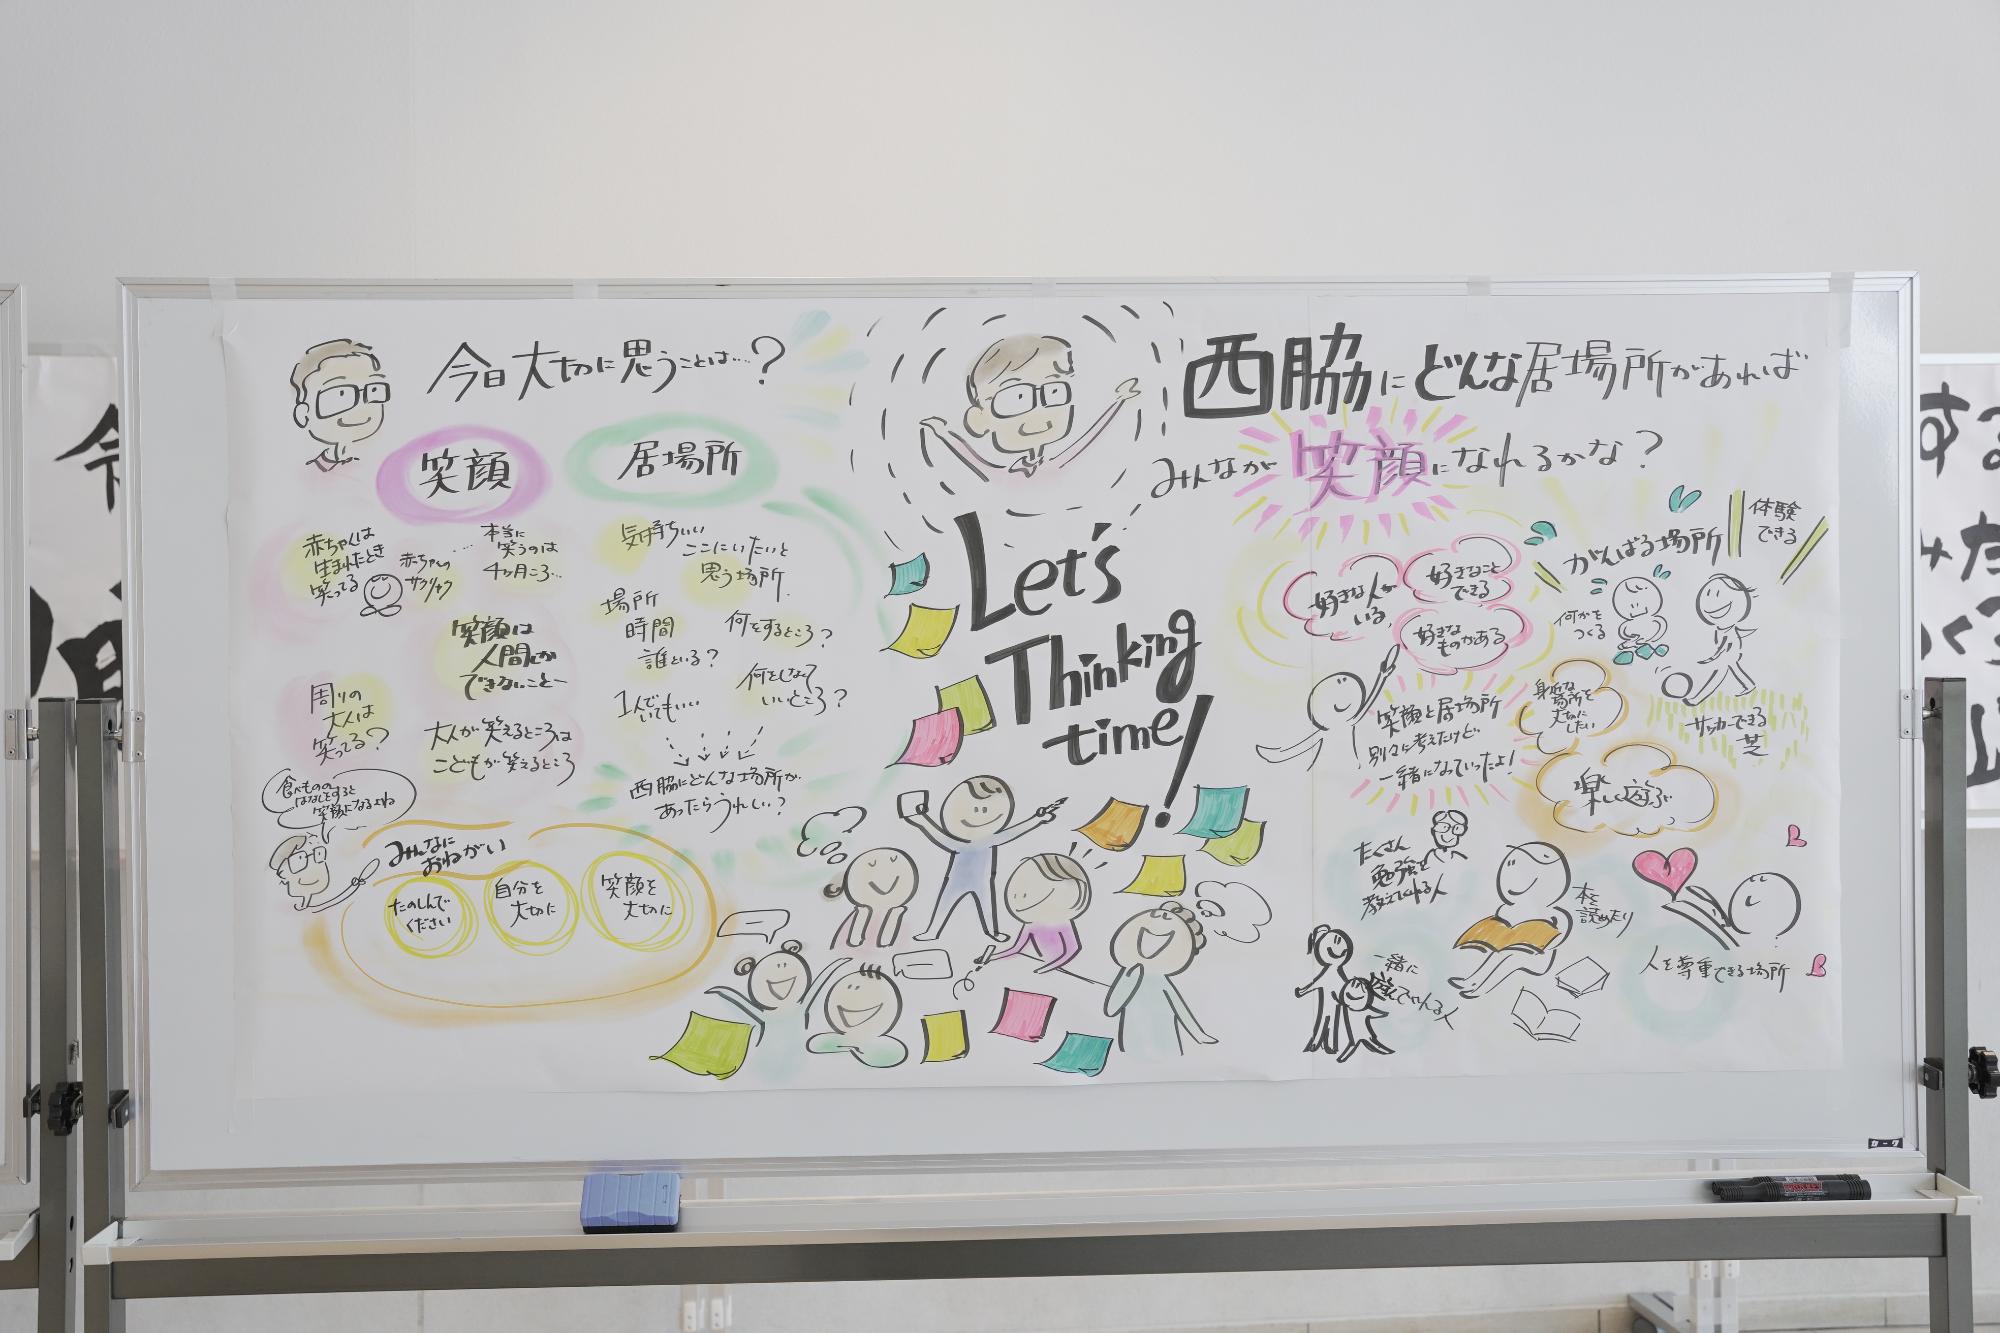 今日大切に思うことは…?
笑顔
居場所
赤ちゃんは
生まれたとき
笑ってる
赤ちゃんの
本当に
笑うのは
4か月ころ…
笑顔は
人間しか
できないこと
周りの
大人は
笑ってる?
大人が笑えるところは
こどもが笑えるところ
気持ちいい
ここにいたいと
思う場所
場所
時間
誰といる?
何をするところ?
1人で
いてもいい
何をしなくて
いいところ?
西脇にどんな場所が
あったらうれしい?
食べものの
はなしをすると
笑顔になるよね
みんなに
おねがい
たのしんで
ください
自分を
大切に
笑顔を
大切に
Let's
Thinking
time!
西脇にどんな居場所があれば
みんなが笑顔になれるかな?
好きな人が
いる
好きなこと
できる
好きな
ものがある
笑顔と居場所
別々に考えたけど
一緒になっていったよ!
がんばる場所
体験
できる
何かを
つくる
サッカーできる
芝
身近な
場所を
大切に
したい
楽しく遊ぶ
たくさん
勉強を
教えてくれる人
本を
読めたり
一緒に
遊んでくれる人
人を尊重できる場所